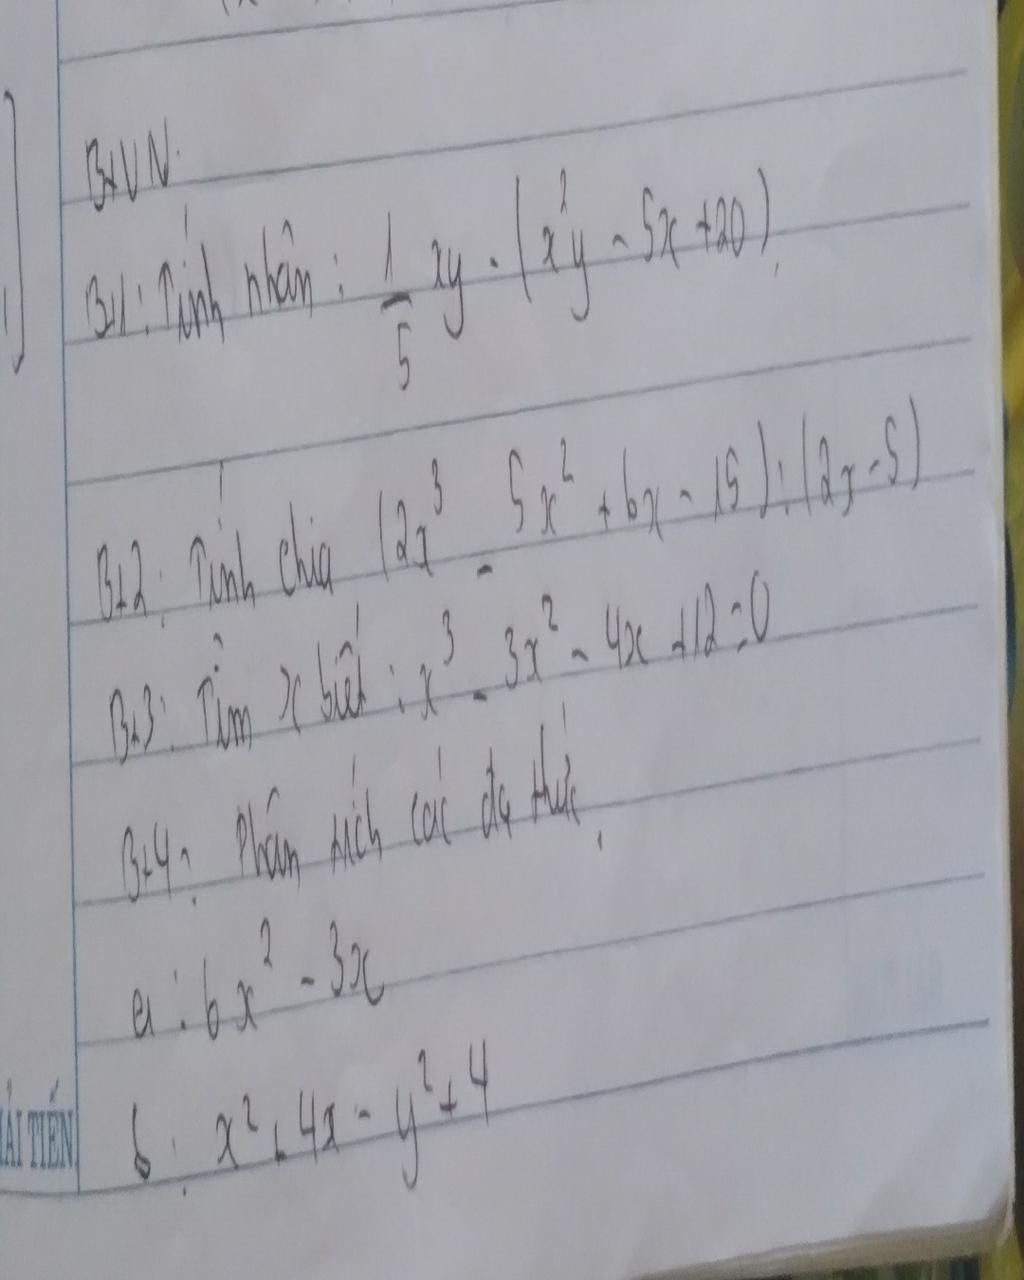 BTVN.
Bt1: Tính nhân: 1/5 xy . (x²y - 5x + 20)
Bt2: Tính chia (2x³ - 5x² + 6x - 15) : (2x - 5)
Bt3: Tìm x biết: x³ - 3x² - 4x + 12 = 0
Bt4: Phân tích các đa thức
a: 6x² - 3x
b: x² + 4x - y² + 4
ẢI TIẾN